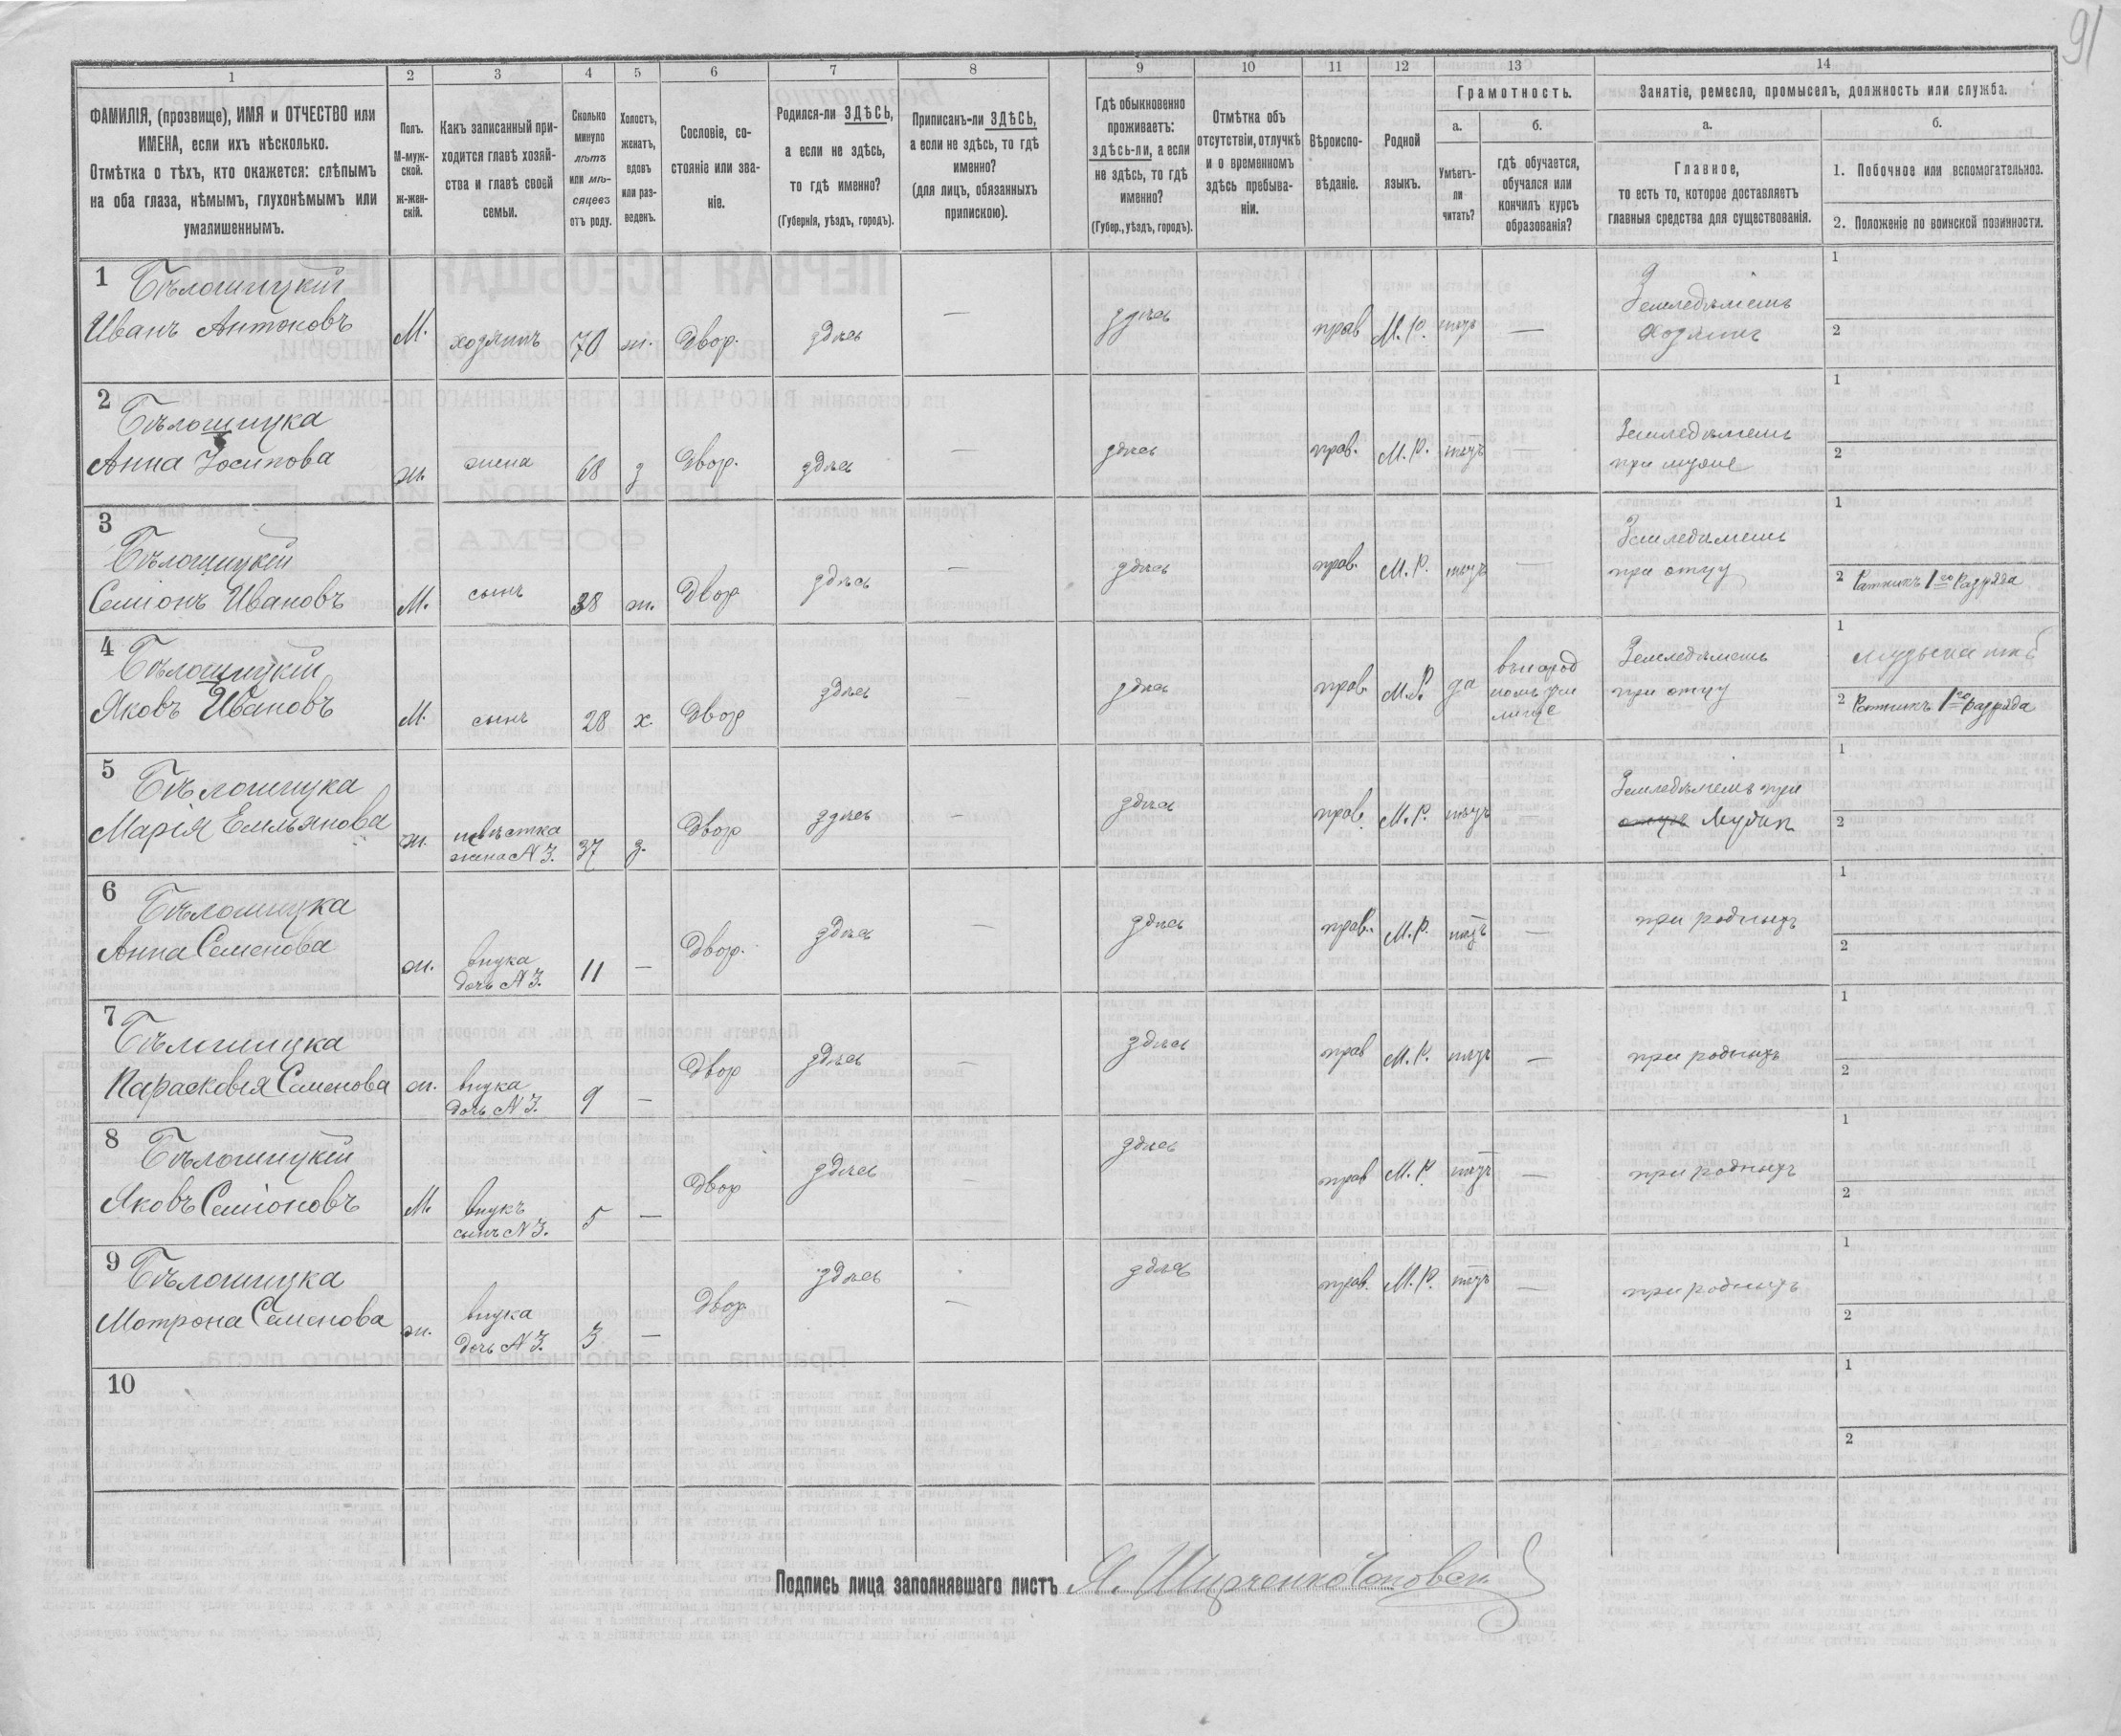 91
1 2 3 4 5 6 7 8 9 10 11 12 13 14
ФАМИЛІЯ, (прозвище), ИМЯ и ОТЧЕСТВО или
ИМЕНА, если ихъ нѣсколько.
Отмѣтка о тѣхъ, кто окажется: слѣпымъ
на оба глаза, нѣмымъ, глухонѣмымъ или
умалишеннымъ.
Полъ.
М-муж-
ской.
ж-жен-
скій.
Какъ записанный при-
ходится главѣ хозяй-
ства и главѣ своей
семьи.
Сколько
минуло
лѣтъ
или мѣ-
сяцевъ
отъ роду.
Холостъ,
женатъ,
вдовъ
или раз-
веденъ.
Сословіе, со-
стояніе или зва-
ніе.
Родился-ли ЗДѢСЬ,
а если не здѣсь,
то гдѣ именно?
(Губернія, уѣздъ, городъ).
Приписанъ-ли ЗДѢСЬ,
а если не здѣсь, то гдѣ
именно?
(для лицъ, обязанныхъ
припискою).
Гдѣ обыкновенно
проживаетъ:
здѣсь-ли, а если
не здѣсь, то гдѣ
именно?
(Губер., уѣздъ, городъ).
Отмѣтка объ
отсутствіи, отлучкѣ
и о временномъ
здѣсь пребыва-
ніи.
Вѣроиспо-
вѣданіе.
Родной
языкъ.
Грамотность.
а.
Умѣетъ-
ли
читать?
б.
гдѣ обучается,
обучался или
кончилъ курсъ
образованія?
Занятіе, ремесло, промыселъ, должность или служба.
а.
Главное,
то есть то, которое доставляетъ
главныя средства для существованія.
б.
1. Побочное или вспомогательное.
2. Положеніе по воинской повинности.
1 Бѣлошицкій
Иванъ Антоновъ М. хозяинъ 70 ж. Двор. здѣсь — здѣсь прав М.Р. — Земледѣлецъ
хозяинъ
1
2
2 Бѣлошицка
Анна Іосипова ж. жена 68 з Двор. здѣсь — здѣсь прав. М.Р. — Земледѣлецъ
при мужѣ
1
2
3 Бѣлошицкій
Семіонъ Ивановъ М. сынъ 38 ж. Двор здѣсь — здѣсь прав. М.Р. — Земледѣлецъ
при отцу
1
2 Ратникъ 1го Разряда
4 Бѣлошицкій
Яковъ Ивановъ М. сынъ 28 х. Двор здѣсь — здѣсь прав. М.Р. да въ народ
номъ учи
лищѣ
Земледѣлецъ
при отцу
1
2 Ратникъ 1го Разряда
5 Бѣлошицка
Марія Емльянова ж. невѣстка
жена N 3. 37 з. Двор здѣсь — здѣсь прав. М.Р. — Земледѣлецъ при
1
2
6 Бѣлошицка
Анна Семенова ж. внука
дочь N 3. 11 — Двор. здѣсь — здѣсь прав. М.Р. — при родныхъ
1
2
7 Бѣлошицка
Парасковія Семенова ж. внука
дочь N 3. 9 — Двор здѣсь — здѣсь прав М.Р. — при родныхъ
1
2
8 Бѣлошицкій
Яковъ Семіоновъ М. внукъ
сынъ N 3. 5 — Двор здѣсь — здѣсь прав М.Р. — при родныхъ
1
2
9 Бѣлошицка
Мотрона Семенова ж. внука
дочь N 3. 3 — Двор здѣсь — здѣсь прав. М.Р. — при родныхъ
1
2
10
1
2
Подпись лица заполнявшаго листъ